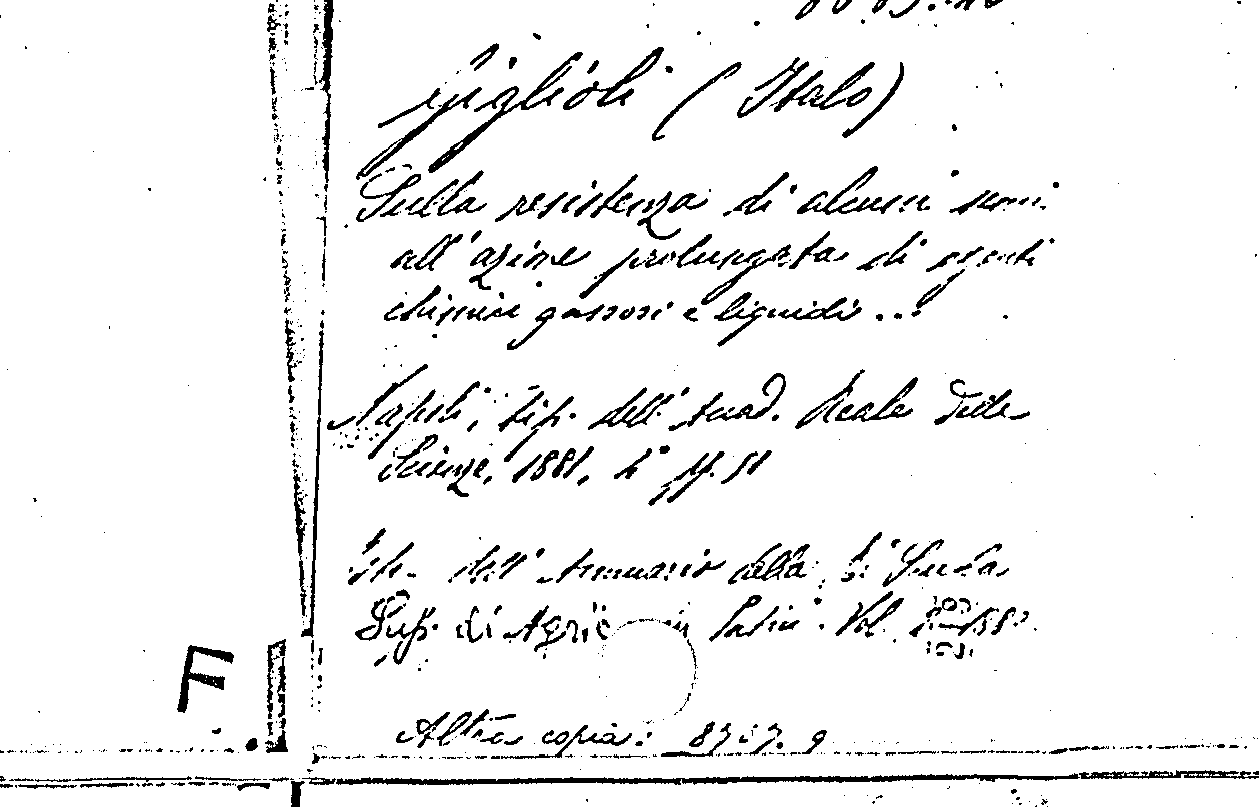 Giglioli (Italo)
Sulla resistenza di alcuni semi
all'azione prolungata di agenti
chimici gassosi e liquidi...
Napoli, tip. dell'Accad. Reale delle
Scienze, 1881, 4° pp. 51
Estr. dell'Annuario della R. Scuola
Sup. di Agric. in Portici. Vol.
F
Altra copia: